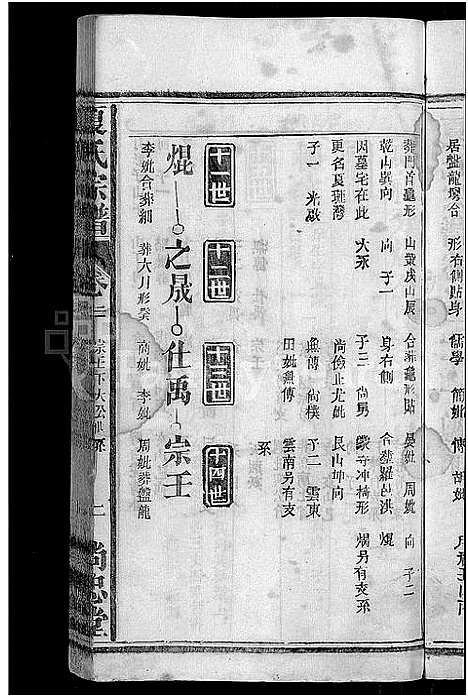 居盤龍塆合 形右側貼身 儒學
葬門首龜形 山巽戌山辰 合葬龜形貼 晏妣 周妣 向 子二
乾山巽向 子一 身右側 合葬羅邑洪 焜
因墓宅在此 大永 子三 尚勇 獄寺冲橋形 煱另有支系
更名夏瓏灣 尚儉止尤妣 艮山坤向
子一 光啟 無傳 尚樸 子二 雲東
田妣無傳 雲南另有支
系
十一世 十二世 十三世 十四世
焜 之晟 仕禹 宗王
李妣合葬細 葬大川形癸 高妣 李妣 周妣葬盤龍
夏氏宗譜 卷二 宗王下大松世系 二 尚忠堂